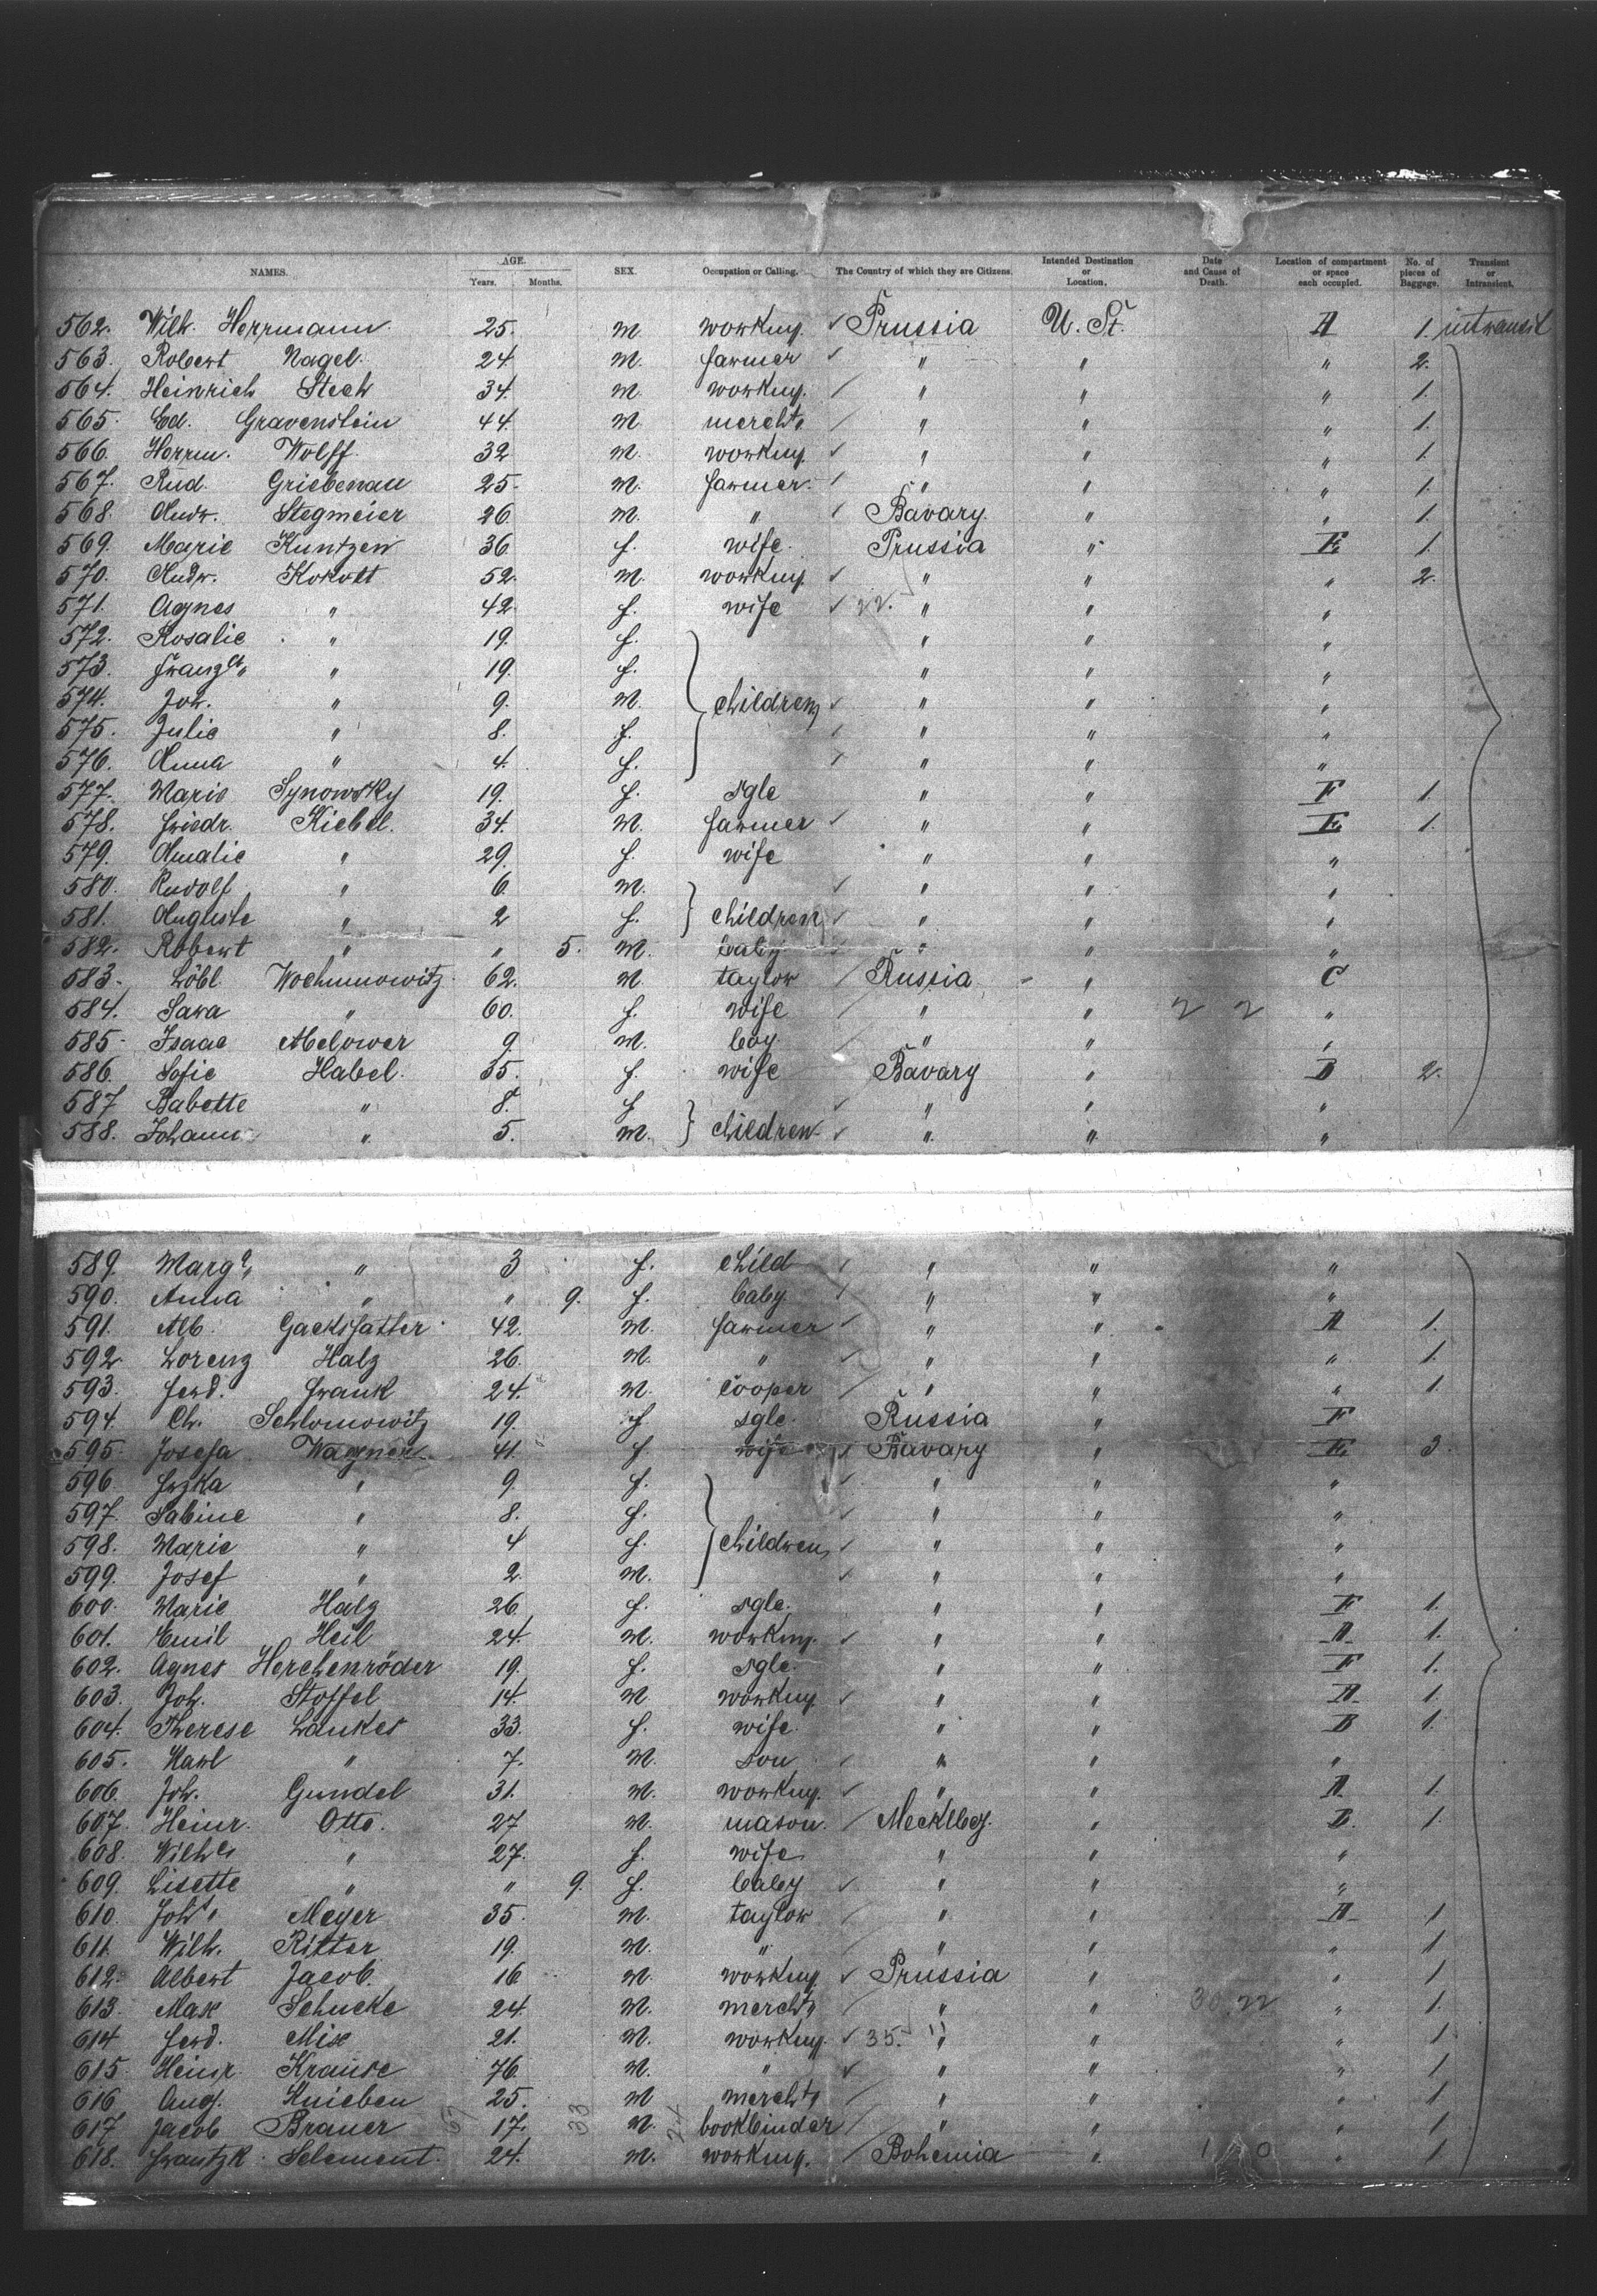 NAMES. AGE. Years. Months. SEX. Occupation or Calling. The Country of which they are Citizens. Intended Destination or Location. Date and Cause of Death. Location of compartment or space each occupied. No. of pieces of Baggage. Transient or Intransient.
562. Wilh. Herrmann 25. m. workmg. ✓ Prussia U. St. A 1. intransit
563. Robert Nagel. 24. m. farmer ✓ " " " 2.
564. Heinrich Stech 34. m. workmg. / " " " 1.
565. Ed. Gravenstein 44. m. mercht. / " " " 1.
566. Herrm. Wolff 32 m. workmg. ✓ " " " 1.
567. Rud. Griebenau 25. m. farmer. / " " " 1.
568. Andr. Stegmeier 26 m. " / Bavary. " " 1.
569. Marie Kuntzen 36 f. wife. Prussia " E 1.
570. Andr. Kokott 52. m. workmg. ✓ " " " 2.
571. Agnes " 42. f. wife ✓ 22. " " "
572. Rosalie " 19. f. " " "
573. Franzca " 19. f. " " "
574. Joh. " 9. m. children ✓ " " "
575. Julie " 8. f. / " " "
576. Anna " 4. f. / " " "
577. Marie Synowsky 19. f. sgle " " F 1.
578. Friedr. Kiebel. 34. m. farmer ✓ " " E 1.
579. Amalie " 29. f. wife " " "
580. Rudolf " 6. m. ✓ " " "
581. Auguste " 2 f. children ✓ " " "
582. Robert " " 5. m. baby ✓ " " "
583. Löbl Wochumowitz 62. m. taylor / Russia " C
584. Sara " 60. f. wife / " " 2 2 "
585. Isaac Melower 9. m. boy. / " " "
586. Sofie Habel. 35. f. wife Bavary " B 2.
587 Babette " 8. f ✓ " " "
588. Johann " 5. m. children ✓ " " "
589. Marga " 3 f. child / " " "
590. Anna " " 9. f. baby. / " " "
591. Alb. Gacksfatter 42. m. farmer ✓ " " A 1.
592. Lorenz Halz 26. m. " ✓ " " " 1.
593. Ferd. Frank 24. m. cooper / " " " 1.
594. Ch. Schlomowitz 19. f sgle. Russia " F
595. Josefa Wagner 41. f. wife ✓ Bavary " E 3.
596. Frzka " 9. f. ✓ " " "
597. Sabine " 8. f. ✓ " " "
598. Marie " 4 f. children ✓ " " "
599. Josef " 2. m. ✓ " " "
600. Marie Halz 26. f. sgle. " " F 1.
601. Emil Heil 24. m. workmg. ✓ " " A 1.
602. Agnes Herchenröder 19. f. sgle. " " F 1.
603. Joh. Stoffel 14. m. workmg. ✓ " " A 1.
604. Therese Laukes 33. f. wife. " " B 1.
605. Karl " 7. m. son / " " "
606. Joh. Gundel 31. m. workmg. ✓ " " A 1.
607. Heinr. Otto. 27 m. mason. / Mecklbg. " B. 1.
608. Wilhe " 27. f. wife " " "
609. Lisette " " 9. f. baby ✓ " " "
610. Johs. Meyer 35. m. taylor / " " A 1
611. Wilh. Ritter 19. m. " / " " " 1
612. Albert Jacob. 16 m. workmg. ✓ Prussia " " 1
613. Max Schucke 24. m. mercht. / " " 30 22 " 1.
614 Ferd. Mix 21. m. workmg. ✓ 35. " " " 1
615. Heinr. Krause 76. m. " ✓ " " " 1
616 Aug. Knieben 25. m mercht. / " " " 1
617 Jacob Brauer 17. m. bookbinder / " " " 1
618. Frantzk Selement. 24. m. workmg. / Bohemia " 1 0 " 1